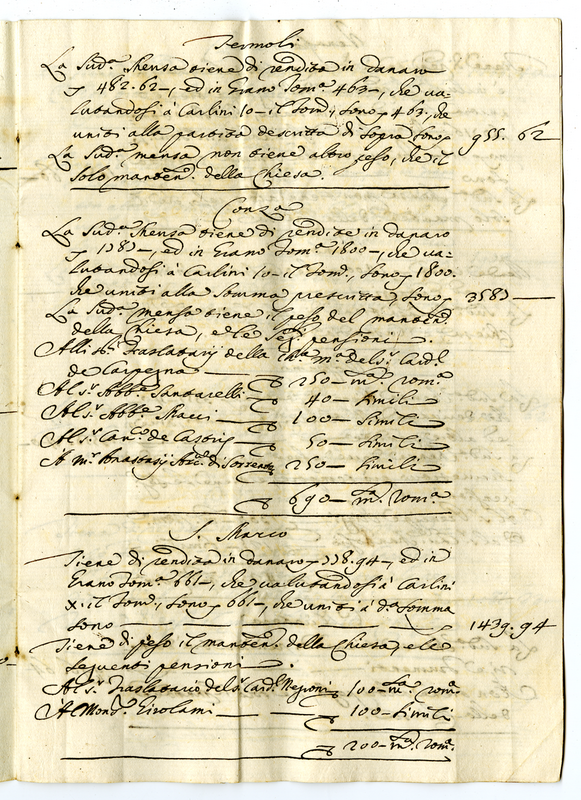 Termoli
La Sud.ª Mensa tiene di rendita in danaro
482.62—, ed in Grano Tom.ª 463—, che va-
lutandosi à Carlini 10— il Tom.º, sono 463, che
uniti alla partita descritta di sopra sono 955. 62
La Sud.ª mensa non tiene altro peso, che il
solo manten.º della Chiesa.
Conza
La Sud.ª Mensa tiene di rendite in danaro
1783—, ed in Grano Tom.ª 1800—, che va-
lutandosi à Carlini 10— il Tom.º, sono 1800.
che uniti alla somma prescritta, sono 3583—
La Sud.ª mensa tiene il peso del manten.º
della Chiesa, e le seg.ti pensioni
Alli Traslatarij della del s.r Card.l
de Carpegna — 250— m.ta rom.ª
Al s.r Abb.e Santarelli 40— simili
Al s.r Abb.e Macci — 100— simili
Al s.r Can.co de Castris 50— simili
A m.r Anastasij Arc.º di Sorrento 250— simili
690— m.ta rom.ª
S. Marco
Tiene di rendita in danaro 778.94—, ed in
Grano Tom.ª 661—, che valutandosi à Carlini
X: il Tom.º, sono 661—, che uniti á d.ª somma
sono — 1439.94
Tiene di peso il manten.º della Chiesa, e le
seguenti pensioni
Al s.r Traslatario del s.r Card.l Negroni 100— m.ta rom.ª
Al Mons.r Girolami — 100— simili
200— m.ta rom.ª